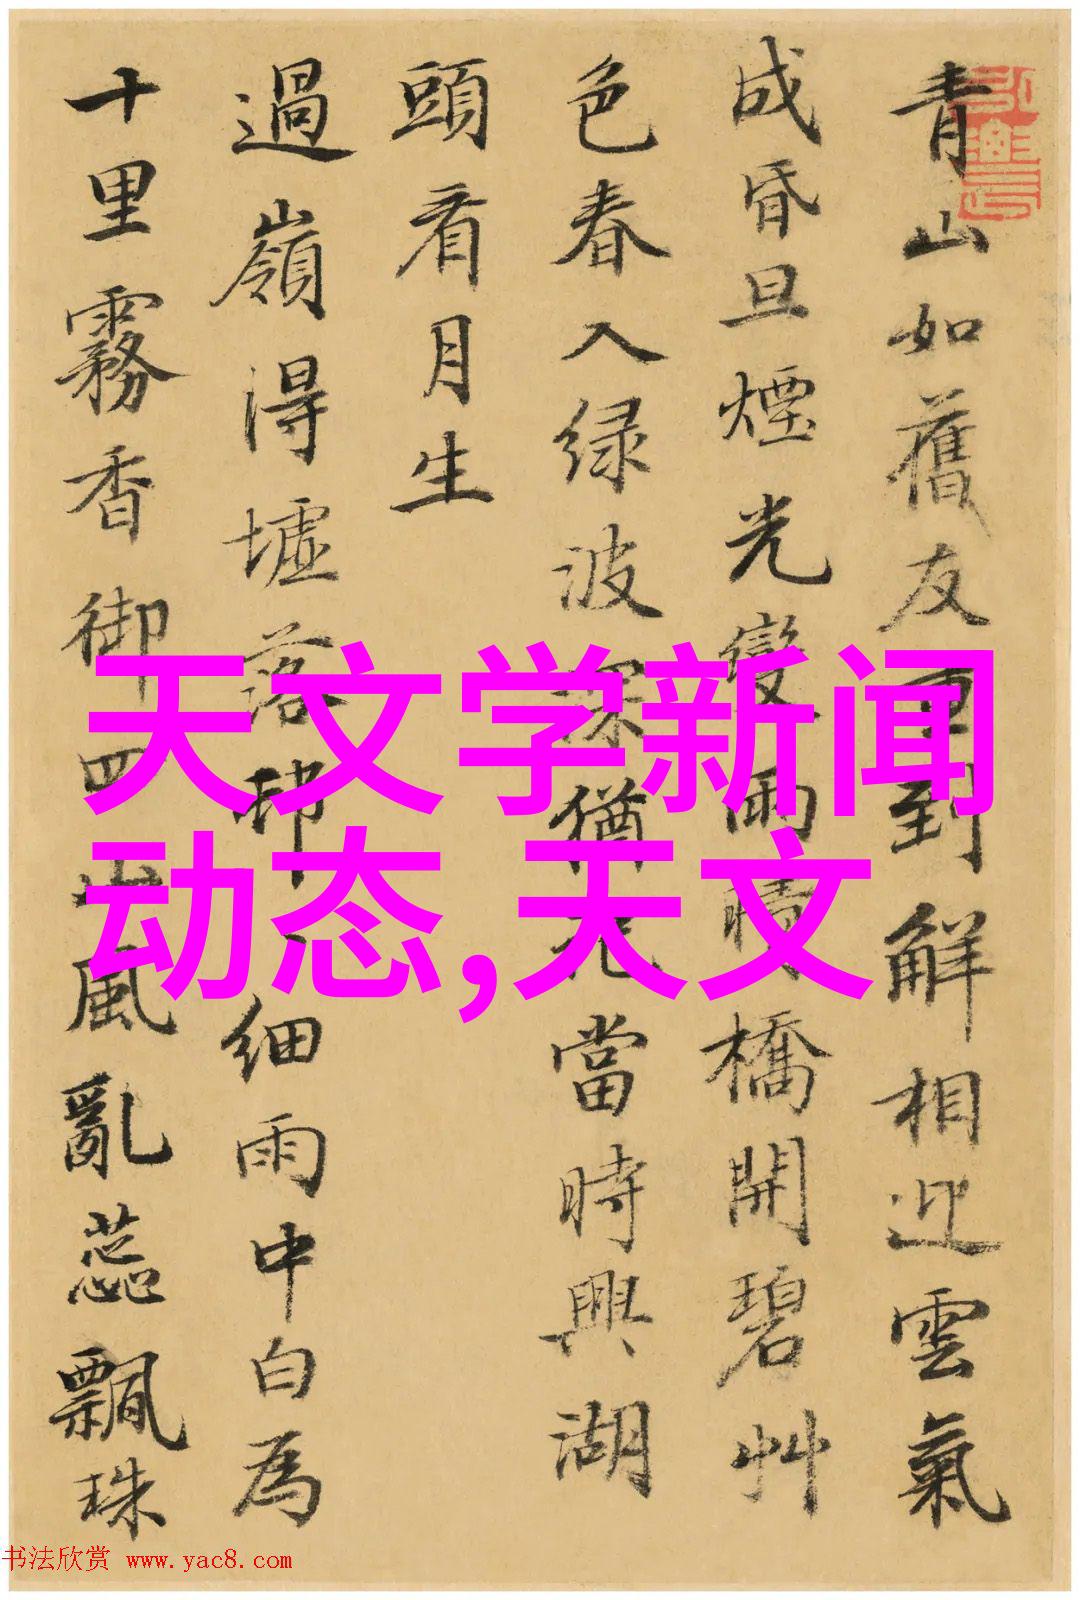 青山如舊友重到解相迎雲氣
成昏旦煙光變雨晴橋開碧艸
色春入绿波深猶在當時興湖
頭看月生
過嶺得墟落邨細雨中白為
十里霧香御四山風亂蕊飄珠
天文学新闻
动态,天文
书法欣赏 www.yac8.com